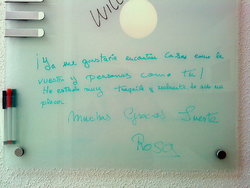 Will
¡Ya me gustaría encontrar Casas como la
vuestra y personas como tú!
He estado muy tranquila y realmente ha sido un
placer.
Muchas Gracias. Suerte
Rosa